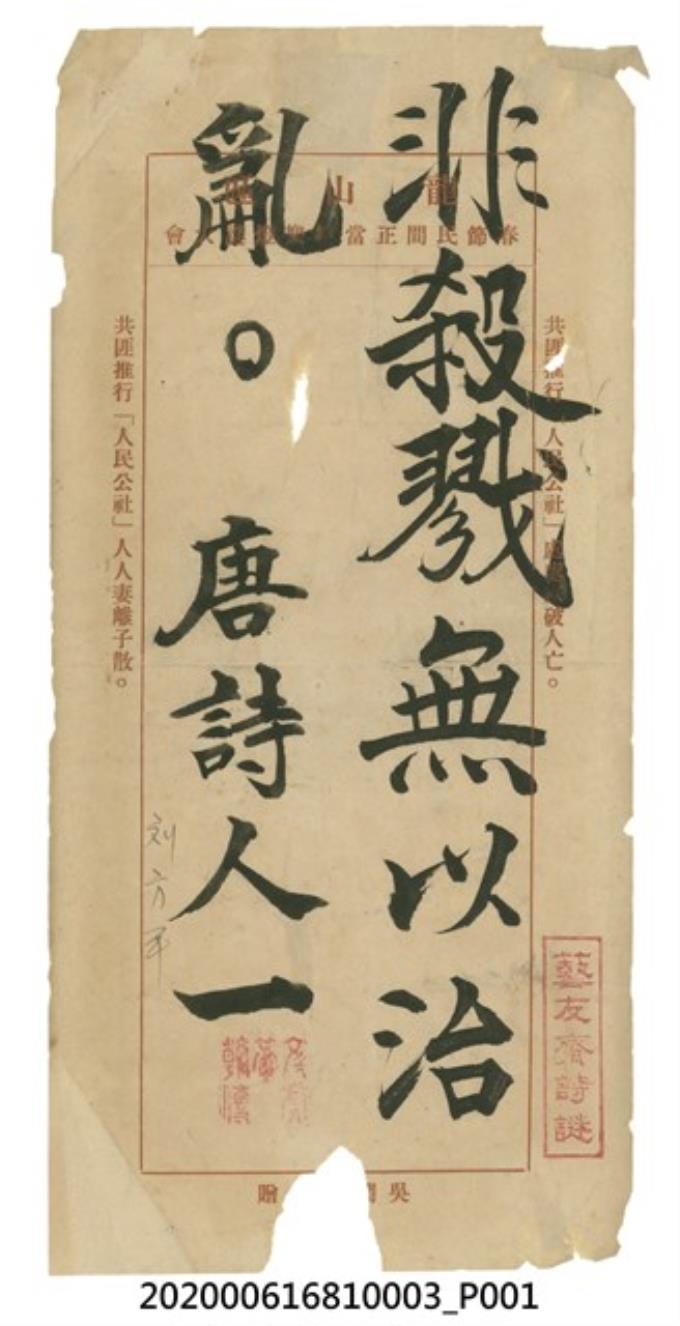 非殺戮無以治
亂。唐詩人一
龍山
春節民間正當會
共匪推行「人民公社」破人亡。
共匪推行「人民公社」人人妻離子散。
刘方平
藝友齋詩謎
吳贈
202000616810003_P001